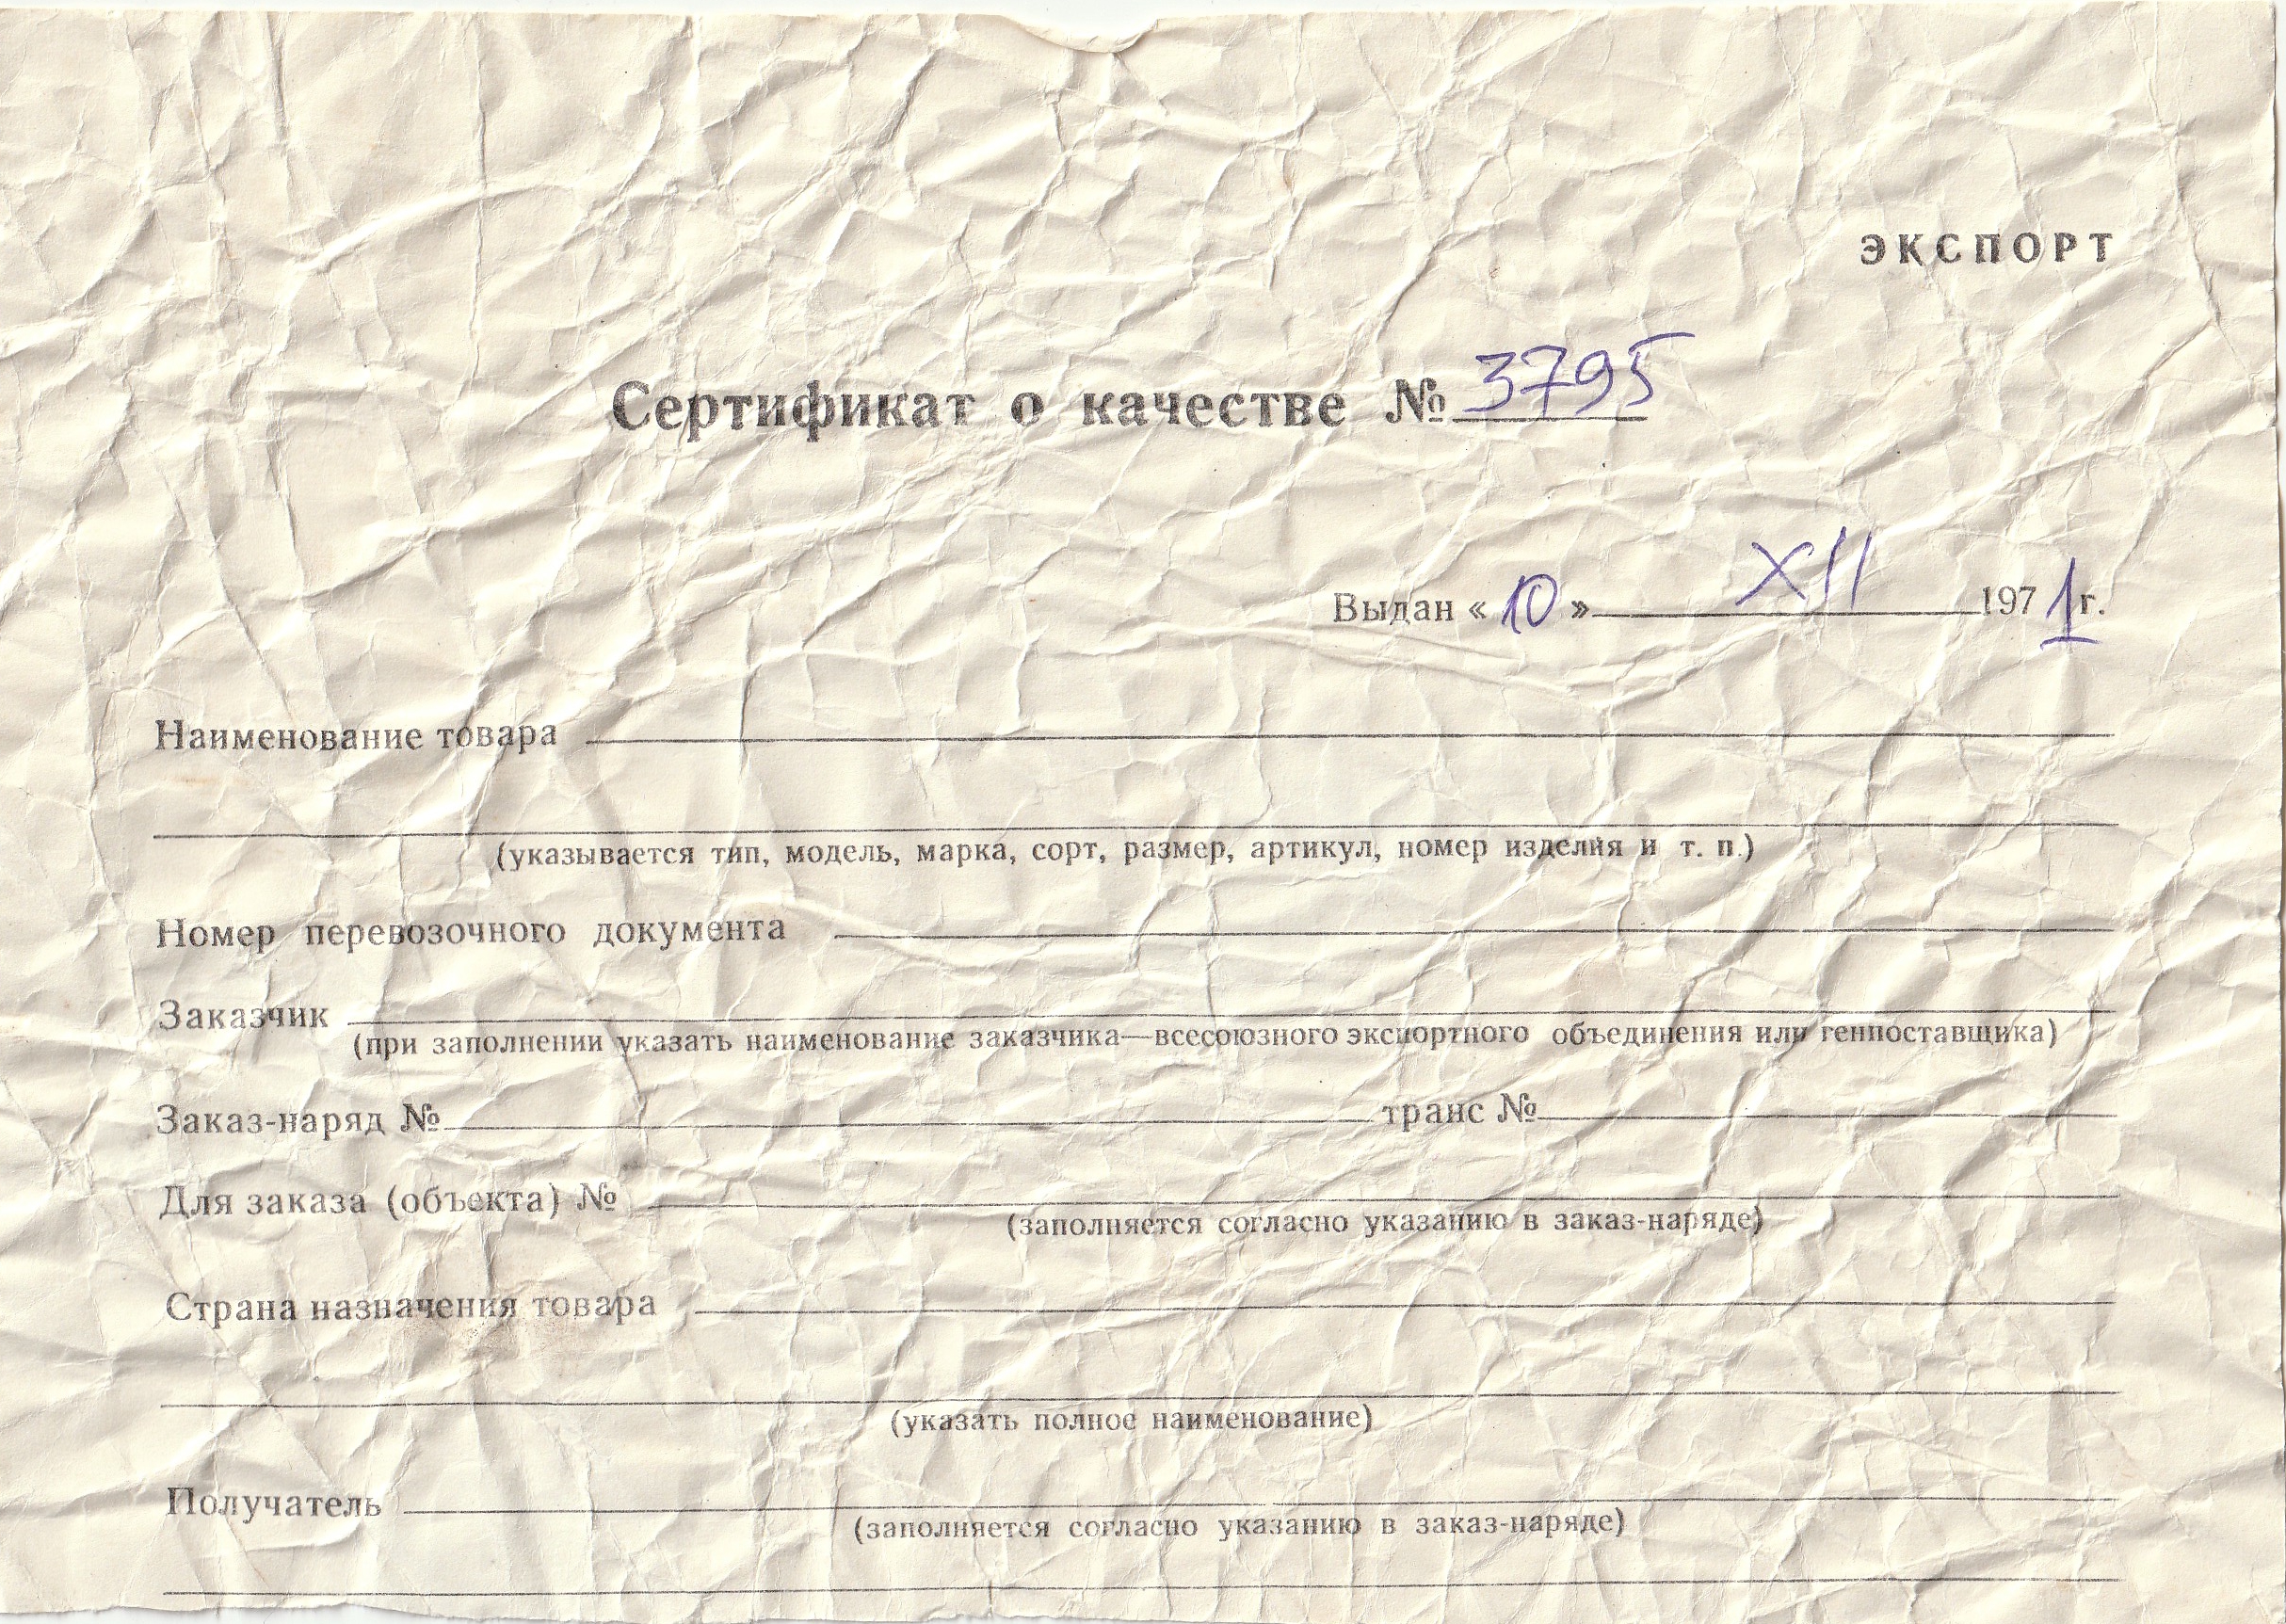 ЭКСПОРТ
Сертификат о качестве № 3795
Выдан « 10 » XII 1971 г.
Наименование товара
(указывается тип, модель, марка, сорт, размер, артикул, номер изделия и т. п.)
Номер перевозочного документа
Заказчик
(при заполнении указать наименование заказчика—всесоюзного экспортного объединения или генпоставщика)
Заказ-наряд № транс №
Для заказа (объекта) №
(заполняется согласно указанию в заказ-наряде)
Страна назначения товара
(указать полное наименование)
Получатель
(заполняется согласно указанию в заказ-наряде)